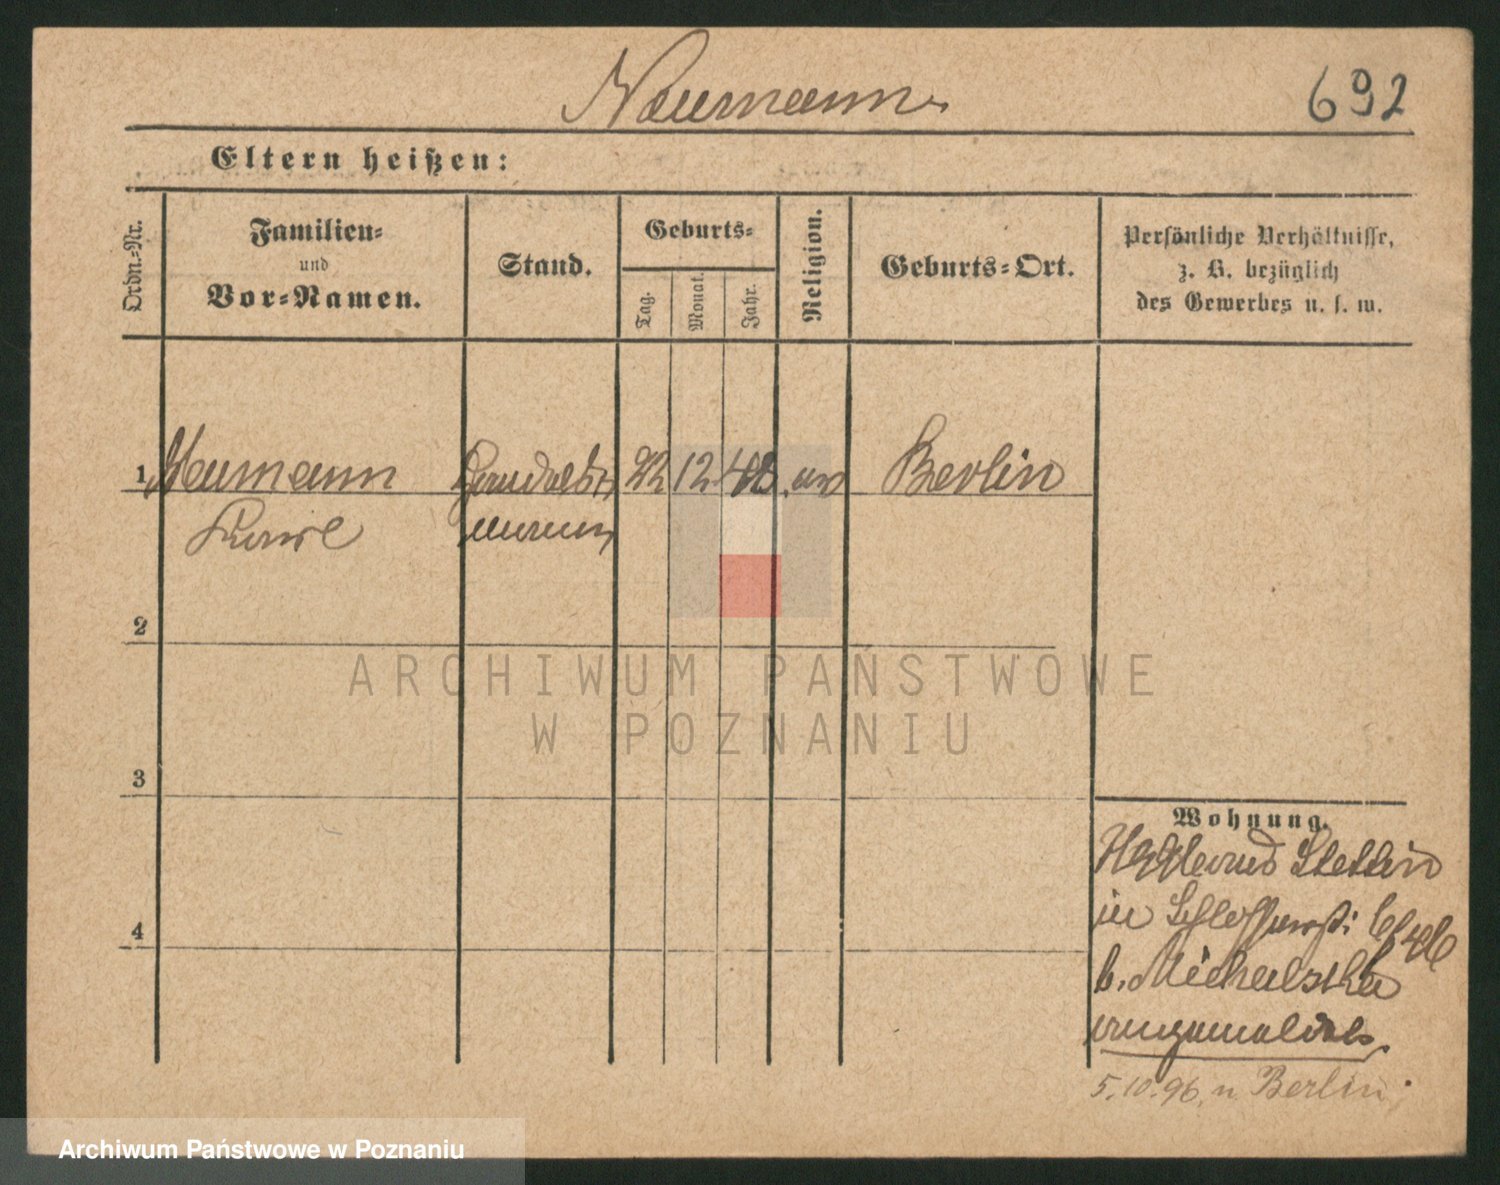 Neumann.
692
Eltern heißen:
Ordn.-Nr.
Familien-
und
Vor-Namen.
Stand.
Geburts-
Tag.
Monat.
Jahr.
Religion.
Geburts-Ort.
Persönliche Verhältnisse,
z. B. bezüglich
des Gewerbes u. s. w.
1
Neumann
Karl
Handels
mann
22
12
48
Berlin
2
ARCHIWUM PAŃSTWOWE
W POZNANIU
3
Wohnung.
Stettin
in
4
b. Michalska
angemeldet.
5.10.96. n Berlin.
Archiwum Państwowe w Poznaniu